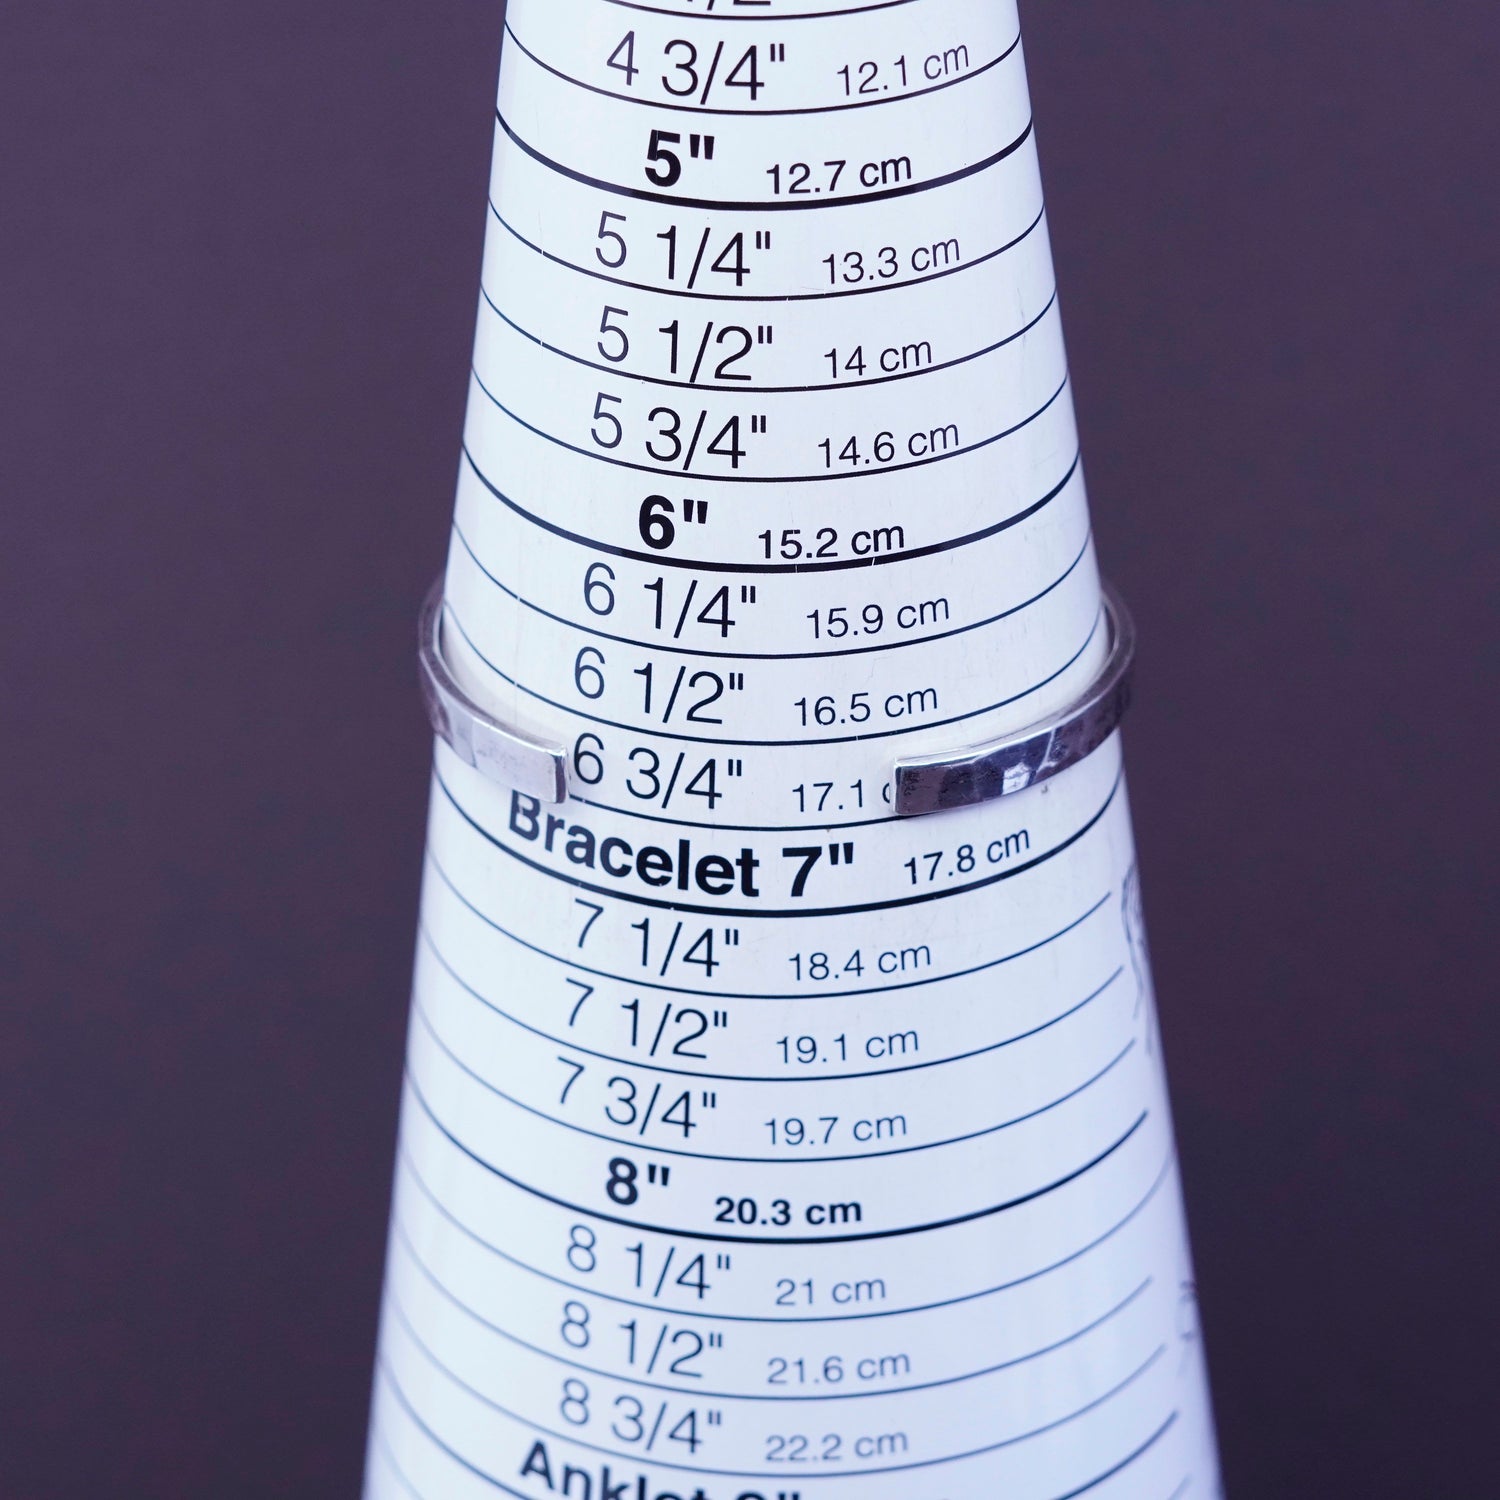 4 3/4" 12.1 cm
5" 12.7 cm
5 1/4" 13.3 cm
5 1/2" 14 cm
5 3/4" 14.6 cm
6" 15.2 cm
6 1/4" 15.9 cm
6 1/2" 16.5 cm
6 3/4" 17.1 c
Bracelet 7" 17.8 cm
7 1/4" 18.4 cm
7 1/2" 19.1 cm
7 3/4" 19.7 cm
8" 20.3 cm
8 1/4" 21 cm
8 1/2" 21.6 cm
8 3/4" 22.2 cm
Anklet 9"